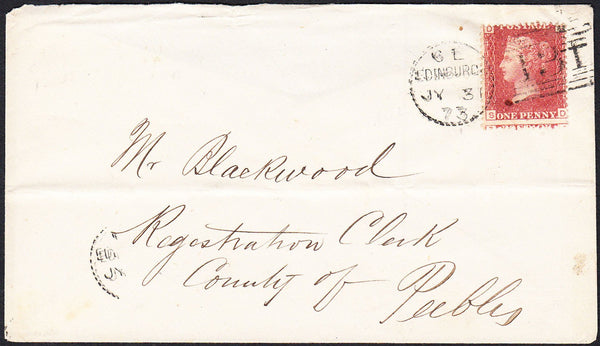 6 E
EDINBURG
JY 31
73
131
D
ONE PENNY
S D
Mr Blackwood
Registration Clerk
County of
Peebles
JY